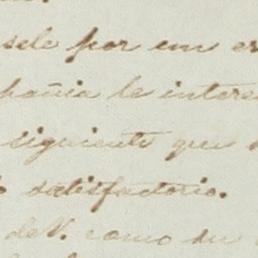 sele por em er
pañia le intere
siguiente que
satisfactorio.
de V. como su